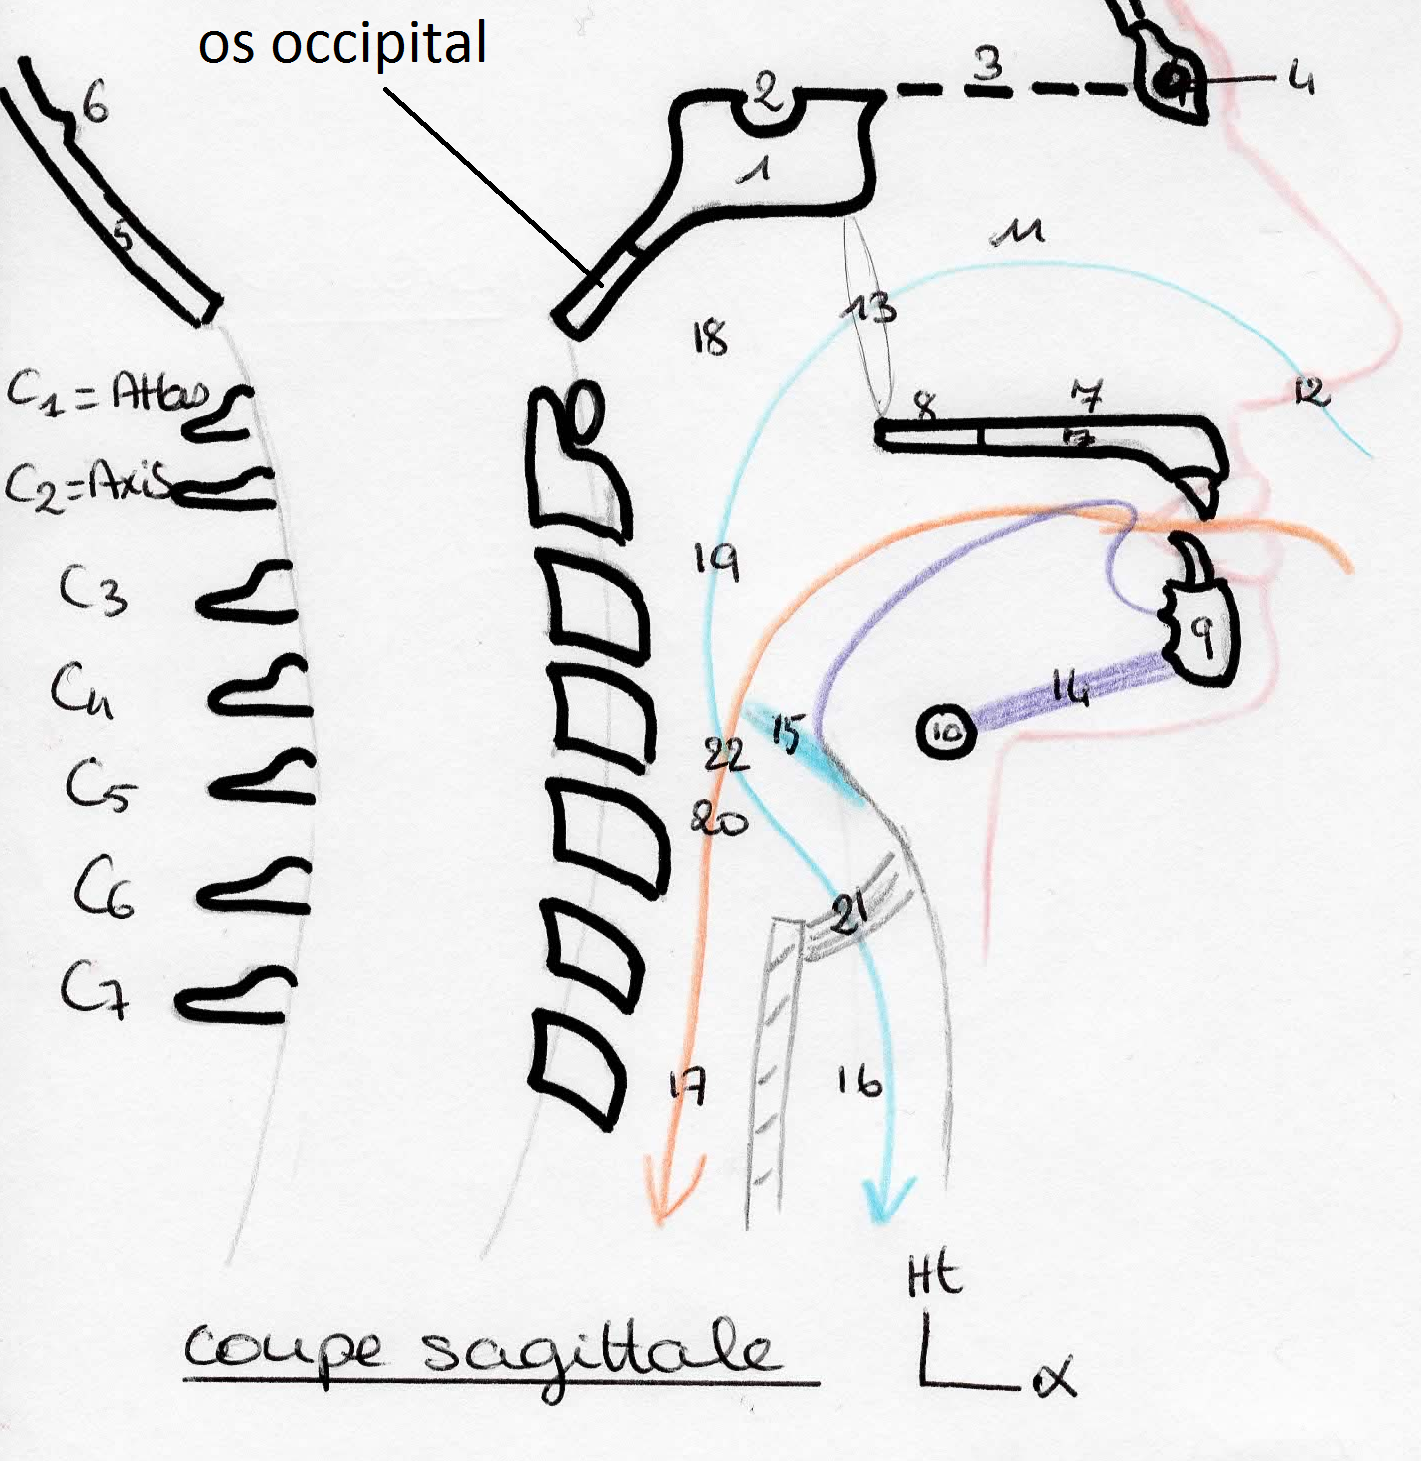 os occipital
3
4
2
6
1
5
11
13
18
12
C1 = Atlas
7
8
C2=Axis
19
C3
9
C4
14
10
15
22
C5
20
C6
21
C7
17
16
Ht
α
coupe sagittale